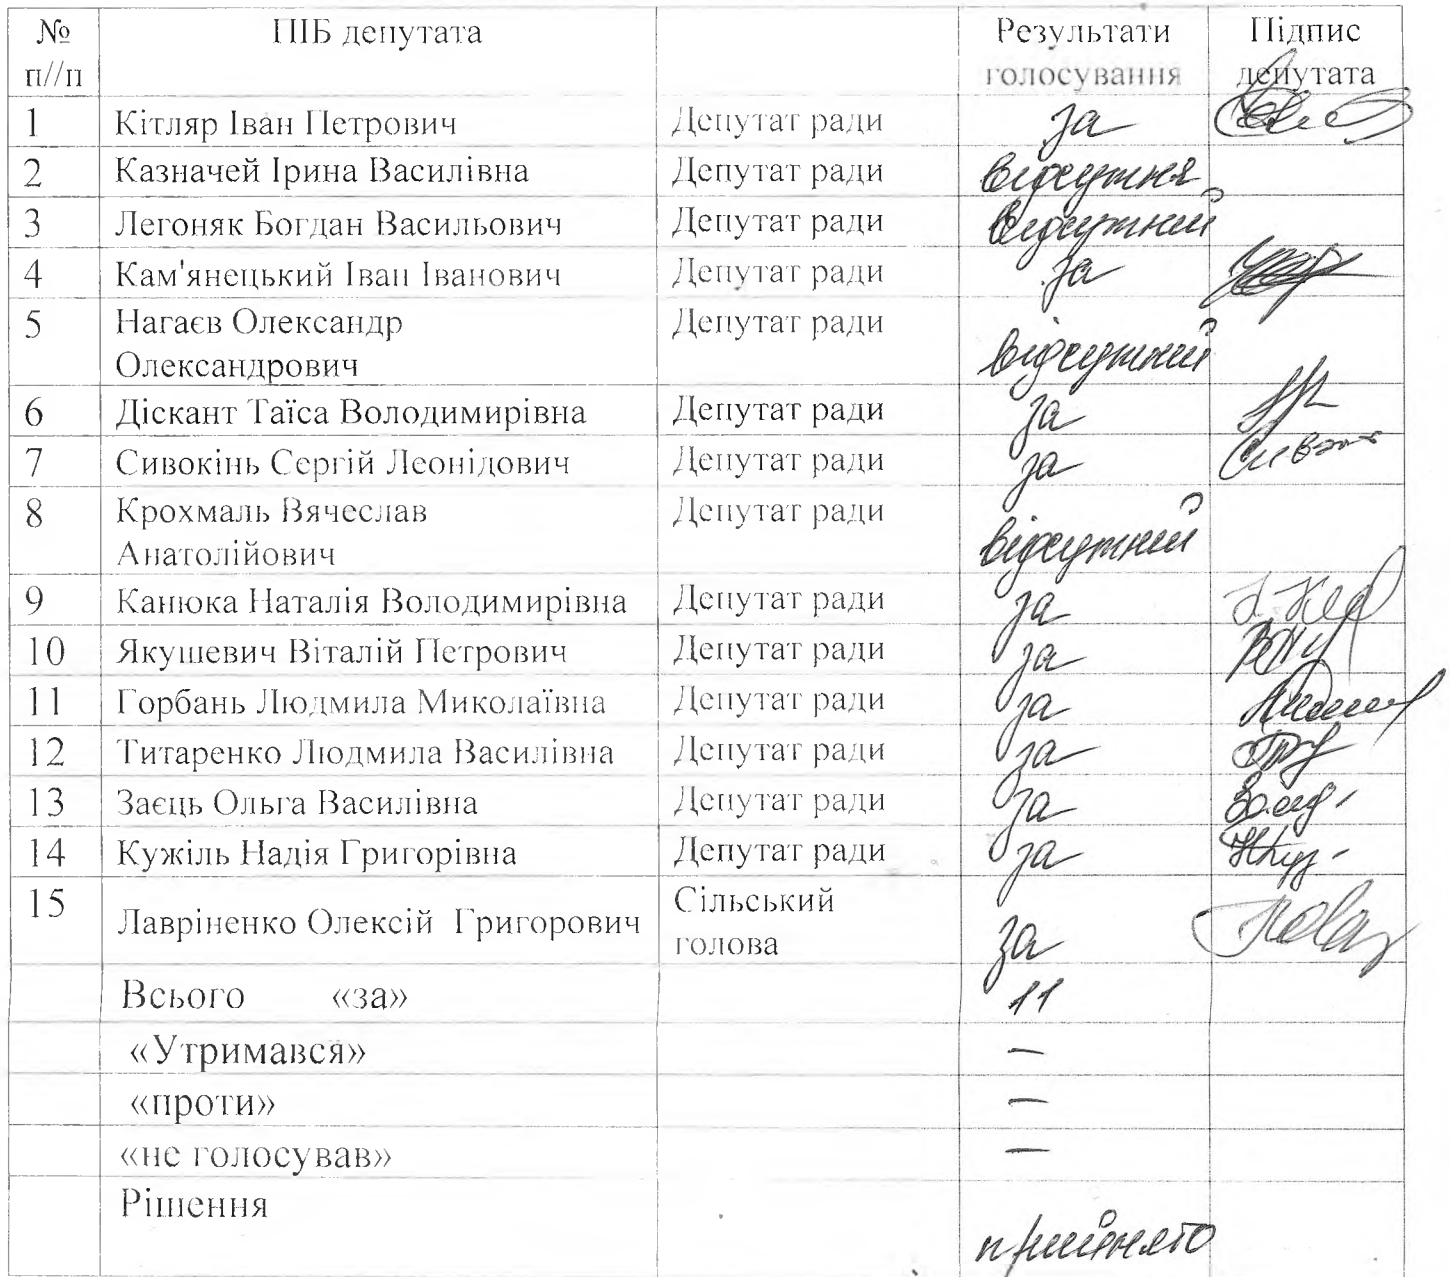 № п//п ПІБ депутата Результати голосування Підпис депутата
1 Кітляр Іван Петрович Депутат ради за
2 Казначей Ірина Василівна Депутат ради відсутня
3 Легоняк Богдан Васильович Депутат ради відсутній
4 Кам'янецький Іван Іванович Депутат ради за
5 Нагаєв Олександр Депутат ради
Олександрович відсутній
6 Діскант Таїса Володимирівна Депутат ради за
7 Сивокінь Сергій Леонідович Депутат ради за
8 Крохмаль Вячеслав Депутат ради
Анатолійович відсутній
9 Канюка Наталія Володимирівна Депутат ради за
10 Якушевич Віталій Петрович Депутат ради за
11 Горбань Людмила Миколаївна Депутат ради за
12 Титаренко Людмила Василівна Депутат ради за
13 Заєць Ольга Василівна Депутат ради за
14 Кужіль Надія Григорівна Депутат ради за
15 Лавріненко Олексій Григорович Сільський голова за
Всього «за» 11
«Утримався» —
«проти» —
«не голосував» —
Рішення
прийнято